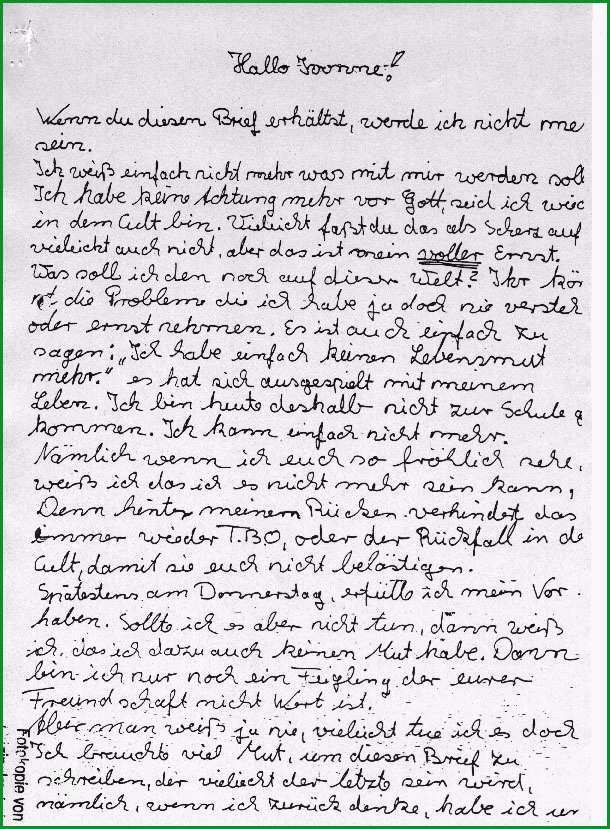 Hallo Ivonne!
Wenn du diesen Brief erhältst, werde ich nicht me
sein.
Ich weiß einfach nicht mehr was mit mir werden soll
Ich habe keine Achtung mehr vor Gott, seid ich wied
in dem Cult bin. Vieleicht faßt du das als Scherz auf
vieleicht auch nicht, aber das ist mein voller Ernst.
Was soll ich den noch auf dieser Welt? Ihr kön
nt die Probleme die ich habe ja doch nie versteh
oder ernst nehmen. Es ist auch einfach zu
sagen: „Ich habe einfach keinen Lebensmut
mehr." es hat sich ausgespielt mit meinem
Leben. Ich bin heute deshalb nicht zur Schule g
kommen. Ich kann einfach nicht mehr.
Nämlich wenn ich euch so fröhlich sehe,
weiß ich das ich es nicht mehr sein kann,
Denn hinter meinem Rücken verhindert das
immer wieder T.B.O, oder der Rückfall in de
Cult, damit sie euch nicht belästigen.
Spätestens am Donnerstag, erfülle ich mein Vor
haben. Sollte ich es aber nicht tun, dann weiß
ich, das ich dazu auch keinen Mut habe. Dann
bin ich nur noch ein Feigling der eurer
Freundschaft nicht Wert ist.
Aber man weiß ja nie, vieleicht tue ich es doch
Ich brauchte viel Mut, um diesen Brief zu
schreiben, der vieliecht der letzte sein wird,
nämlich, wenn ich zurück denke, habe ich un
Fotokopie von